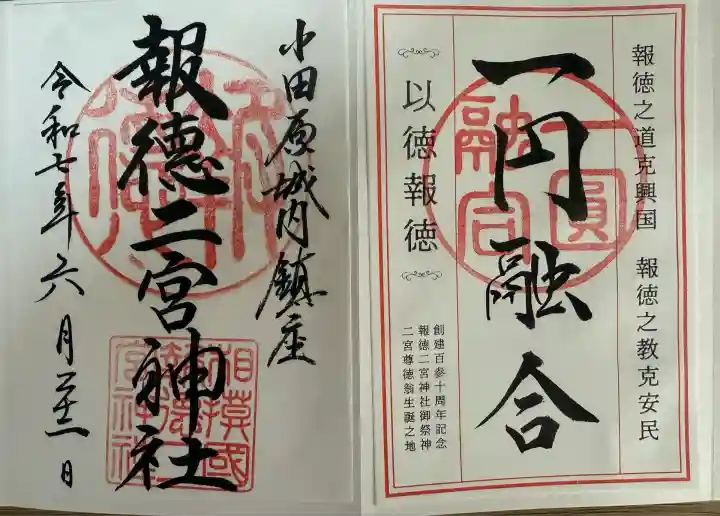 一円融合
報徳之道克興国 報徳之教克安民
以徳報徳
創建百参十周年記念
報徳二宮神社御祭神
二宮尊徳翁生誕之地
一圓融合
小田原城内鎮座
報徳二宮神社
令和七年六月二十一日
相模國